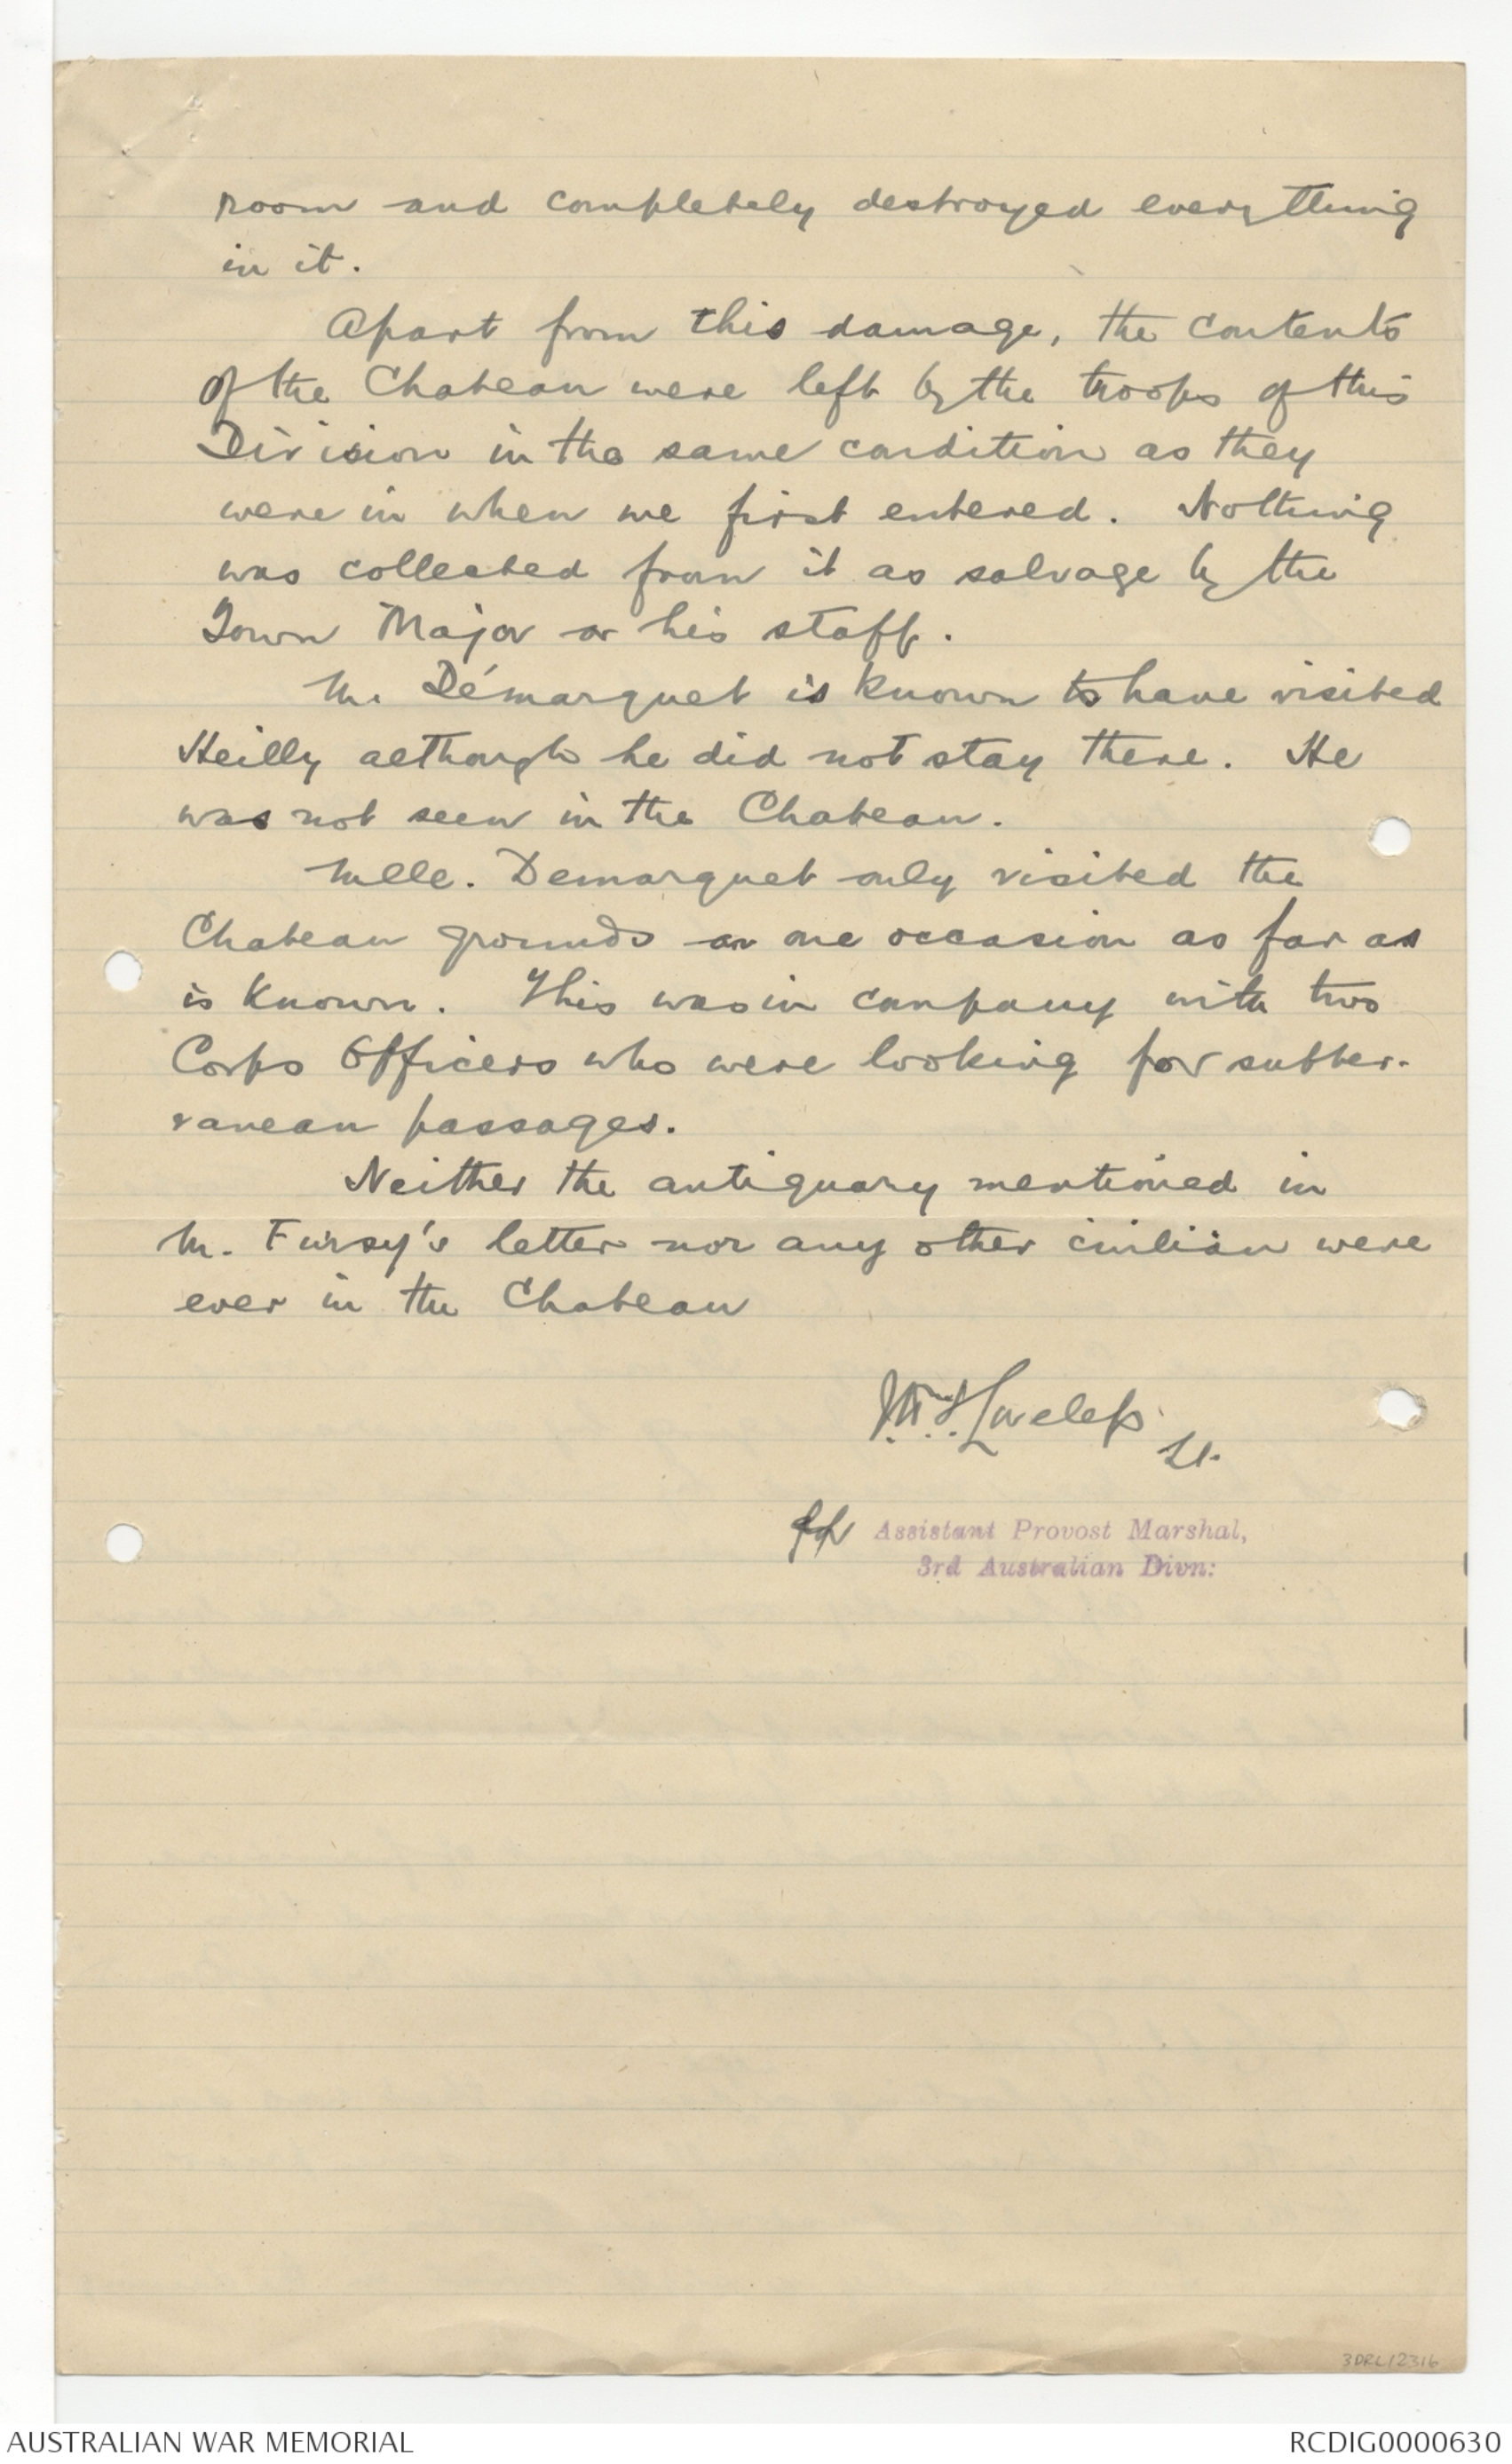 room and completely destroyed everything
in it.
Apart from this damage, the contents
of the Chateau were left by the troops of this
Division in the same condition as they
were in when we first entered. Nothing
was collected from it as salvage by the
Town Major or his staff.
M. Démarquet is known to have visited
Heilly although he did not stay there. He
was not seen in the Chateau.
Mlle. Demarquet only visited the
Chateau grounds on one occasion as far as
is known. This was in company with two
Corps Officers who were looking for subter-
ranean passages.
Neither the antiquary mentioned in
M. Fursy's letter nor any other civilian were
ever in the Chateau
Loveless
Lt.
for Assistant Provost Marshal,
3rd Australian Divn:
3DRL/2316
AUSTRALIAN WAR MEMORIAL
RCDIG0000630